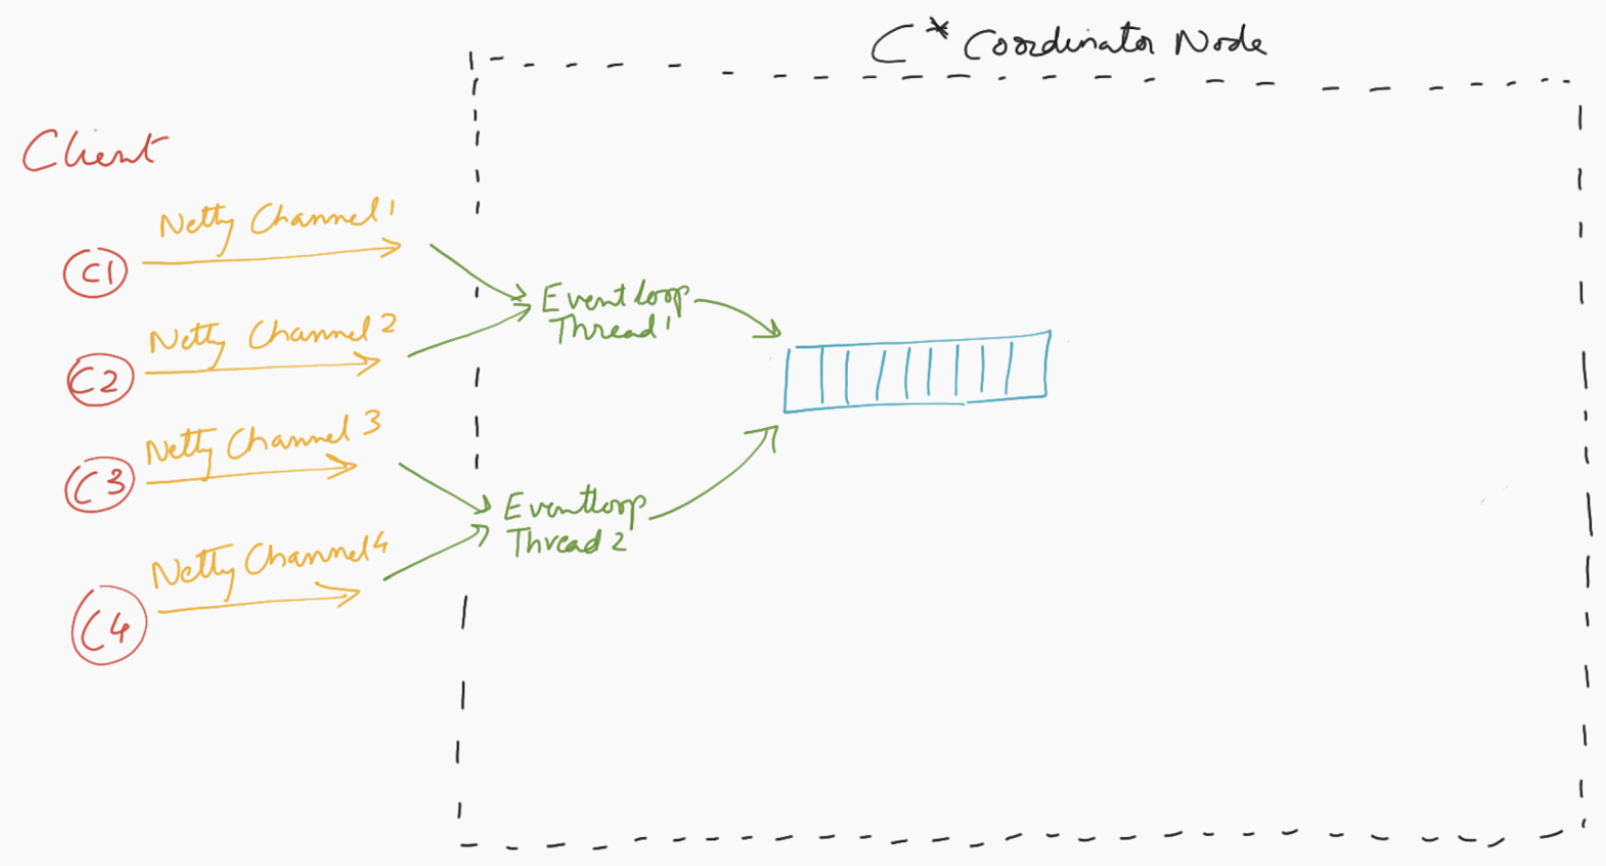 C* Coordinator Node
Client
Netty Channel 1
C1
Netty Channel 2
C2
Netty Channel 3
C3
Netty Channel 4
C4
Event loop
Thread 1
Eventloop
Thread 2